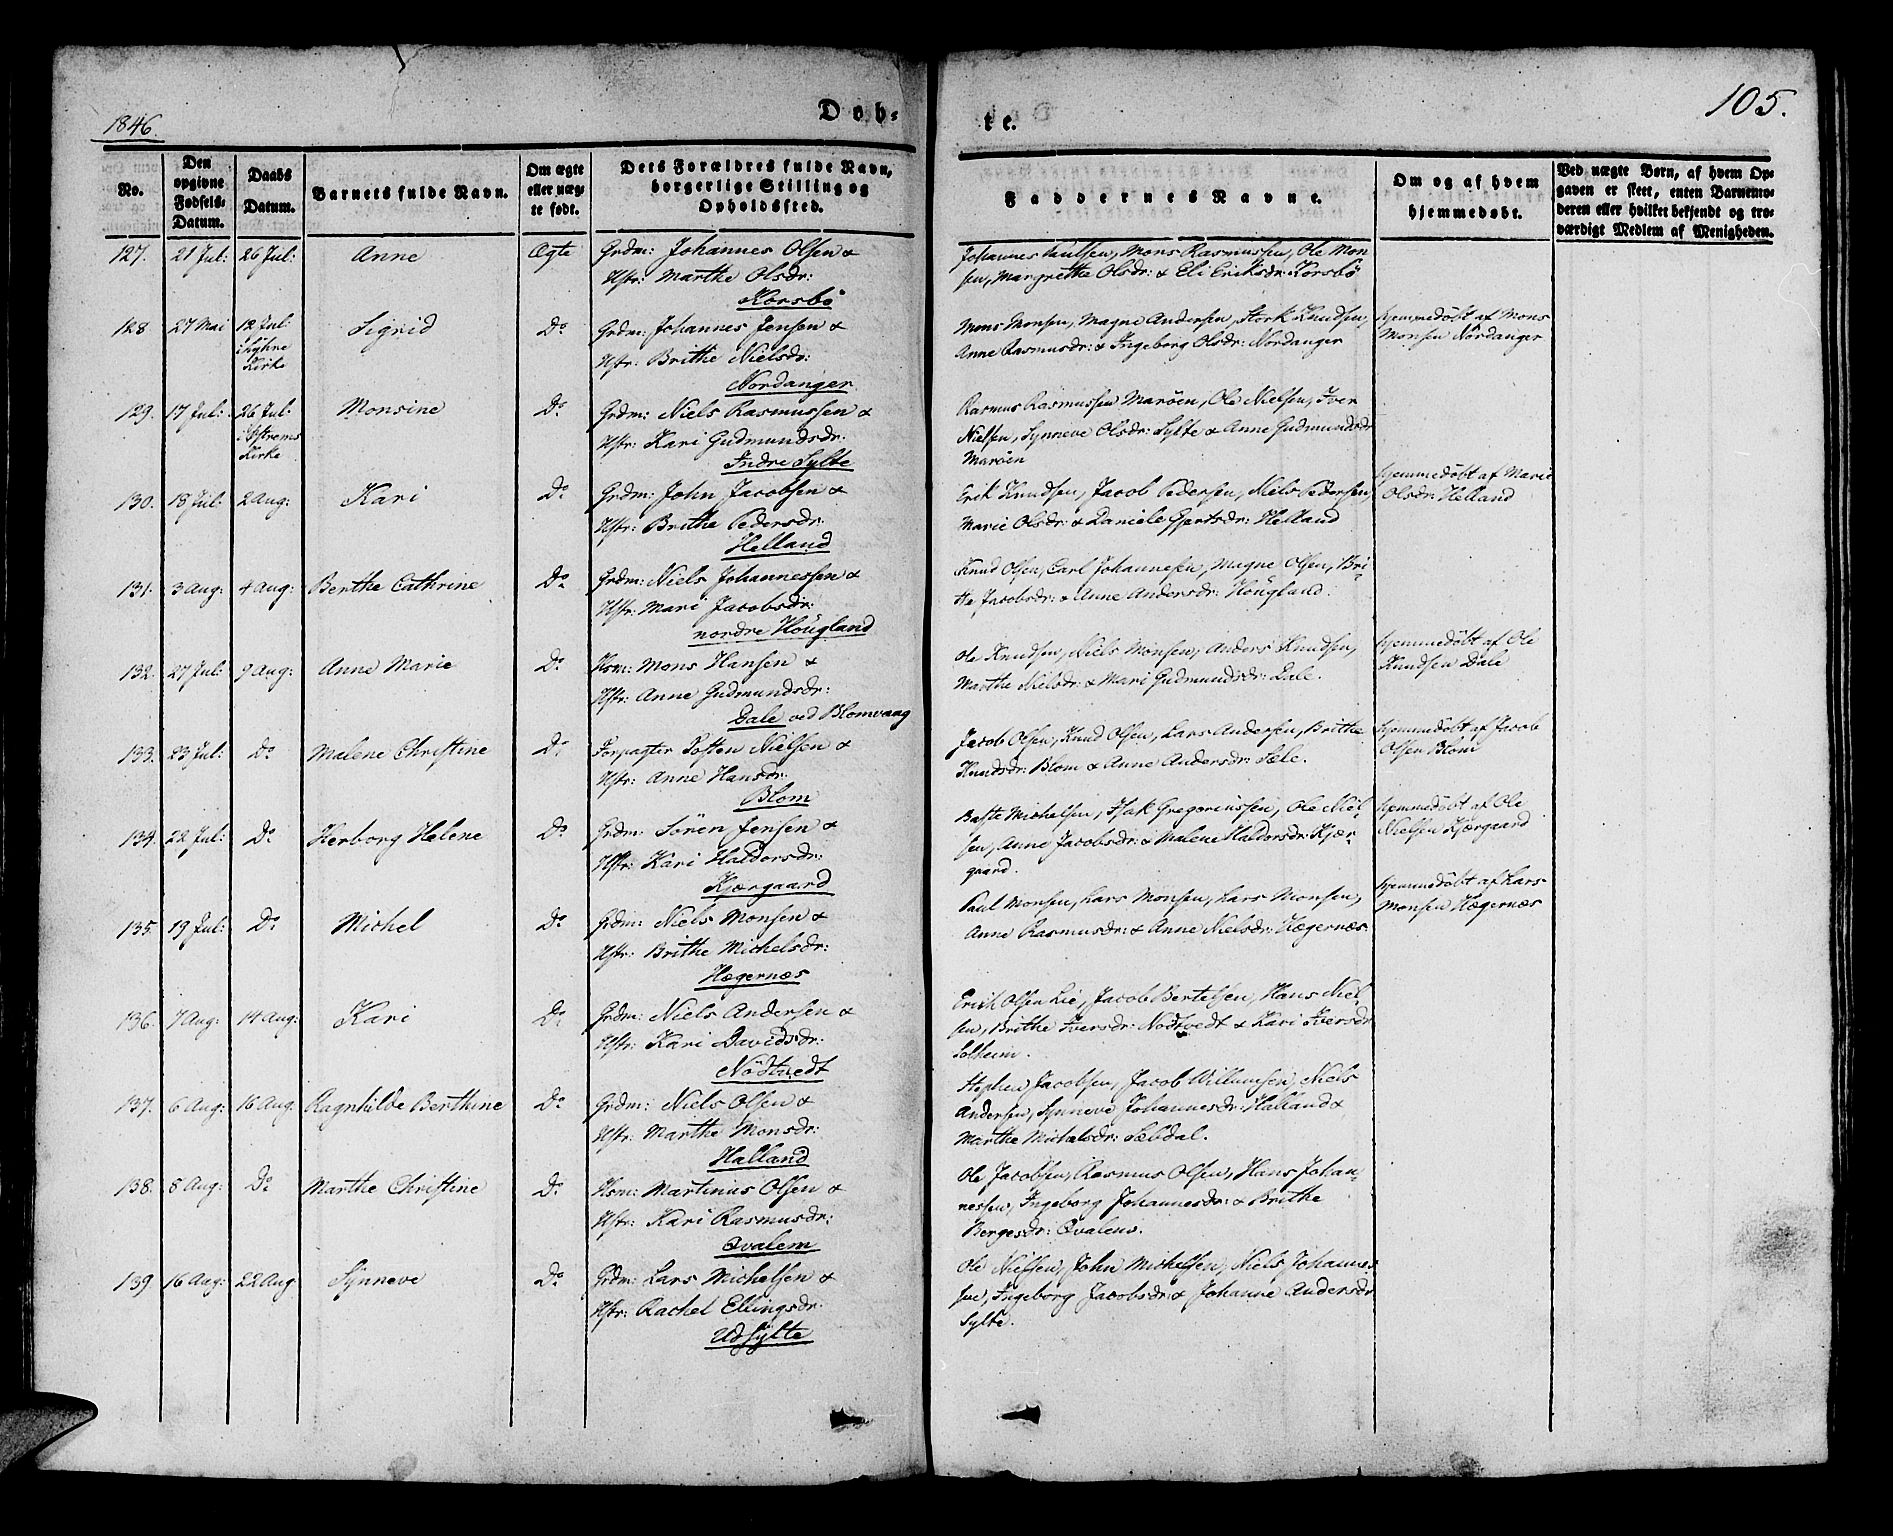 1846.
Døb-
te.
105.
No.
Den opgivne Fødsels-Datum.
Daabs Datum.
Barnets fulde Navn.
Om ægte eller uæg-te født.
Dets Forældres fulde Navn, borgerlige Stilling og Opholdssted.
Faddernes Navne.
Om og af hvem hjemmedøbt.
Ved uægte Børn, af hvem Op-gaven er skeet, enten Barnemo-deren eller hvilket bekjendt og tro-værdigt Medlem af Menigheden.
127. 21 Jul: 26 Jul: Anne Ægte Grdm: Johannes Olsen &
Hstr: Marthe Olsdr:
Korsbö
Johannes Paulsen, Mons Rasmussen, Ole Mon-
sen, Margrethe Olsdr: & Eli Eriksdr: Korsbö
128 27 Mai 12 Jul: Sigrid Do Grdm: Johannes Jensen &
Kirke
Hstr: Brithe Nielsdr:
Nordanger
Mons Monsen, Magne Andersen, Stork Knudsen,
Anne Rasmusdr: & Ingeborg Olsdr: Nordanger
hjemmedöbt af Mons
Monsen Nordanger
129. 17 Jul: 26 Jul: Monsine Do Grdm: Niels Rasmussen &
Kirke
Hstr: Kari Gudmundsdr:
Indre Sylte
Rasmus Rasmussen Maröen, Ole Nielsen, Iver
Nielsen, Synneve Olsdr: Sylte & Anne Gudmundsdr
Maröen
130. 18 Jul: 2 Aug: Kari Do Grdm: John Jacobsen &
Hstr: Brithe Pedersdr:
Helland
Erik Knudsen, Jacob Pedersen, Niels Pedersen,
Marie Olsdr: & Daniele Gjertsdr: Helland
hjemmedöbt af Marie
Olsdr: Helland
131. 3 Aug: 4 Aug: Berthe Cathrine Do Grdm: Niels Johannessen &
Hstr: Mari Jacobsdr:
nordre Höugland
Knud Olsen, Carl Johannesen, Magne Olsen, Bri-
the Jacobsdr: & Anne Andersdr: Höugland.
132. 27 Jul: 9 Aug: Anne Marie Do Hsm: Mons Hansen &
Hstr: Anne Gudmundsdr:
Dale ved Blomvaag
Ole Knudsen, Niels Monsen, Anders Knudsen,
Marthe Nielsdr: & Mari Gudmundsdr: Dale.
hjemmedöbt af Ole
Knudsen Dale
133. 23 Jul: Do Malene Christine Do Forpagter Nielsen &
Hstr: Anne Hansdr:
Blom
Jacob Olsen, Knud Olsen, Lars Andersen, Brithe
Knudsdr: Blom & Anne Andersdr: Sæle.
hjemmedöbt af Jacob
Olsen Blom
134. 22 Jul: Do Herborg Helene Do Grdm: Sören Jensen &
Hstr: Kari Haldorsdr:
Kjærgaard
Baste Michelsen, Isak Gregoriussen, Ole Niel-
sen, Anne Jacobsdr: & Malene Haldorsdr: Kjær-
gaard.
hjemmedöbt af Ole
Nielsen Kjærgaard
135. 19 Jul: Do Michel Do Grdm: Niels Monsen &
Hstr: Brithe Michelsdr:
Hægernæs
Paul Monsen, Lars Monsen, Lars Monsen,
Anne Rasmusdr: & Anne Nielsdr: Hægernæs.
hjemmedöbt af Lars
Monsen Hægernæs
136. 7 Aug: 14 Aug: Kari Do Grdm: Niels Andersen &
Hstr: Kari Davidsdr:
Nödtvedt
Erik Olsen Lie, Jacob Bertelsen, Hans Niel-
sen, Brithe Iversdr: Nödtvedt & Kari Iversdr
Solheim.
137. 6 Aug: 16 Aug. Ragnhilde Berthine Do Grdm: Niels Olsen &
Hstr: Marthe Monsdr:
Halland
Stephen Jacobsen, Jacob Willumsen, Niels
Andersen, Synneve Johannesdr: Halland &
Marthe Michelsdr: Sæbdal.
138. 8 Aug: Do Marthe Christine Do Hsm: Martinus Olsen &
Hstr: Kari Rasmusdr:
Qvalem
Ole Jacobsen, Rasmus Olsen, Hans Johan-
nessen, Ingeborg Johannesdr: & Brithe
Bergesdr: Qvalem.
139 16 Aug: 22 Aug Synneve Do Grdm: Lars Michelsen &
Hstr: Rachel Ellingsdr:
Udsylte
Ole Nielsen, John Michelsen, Niels Johannes-
sen, Ingeborg Jacobsdr: & Johanne Andersdr
Sylte.